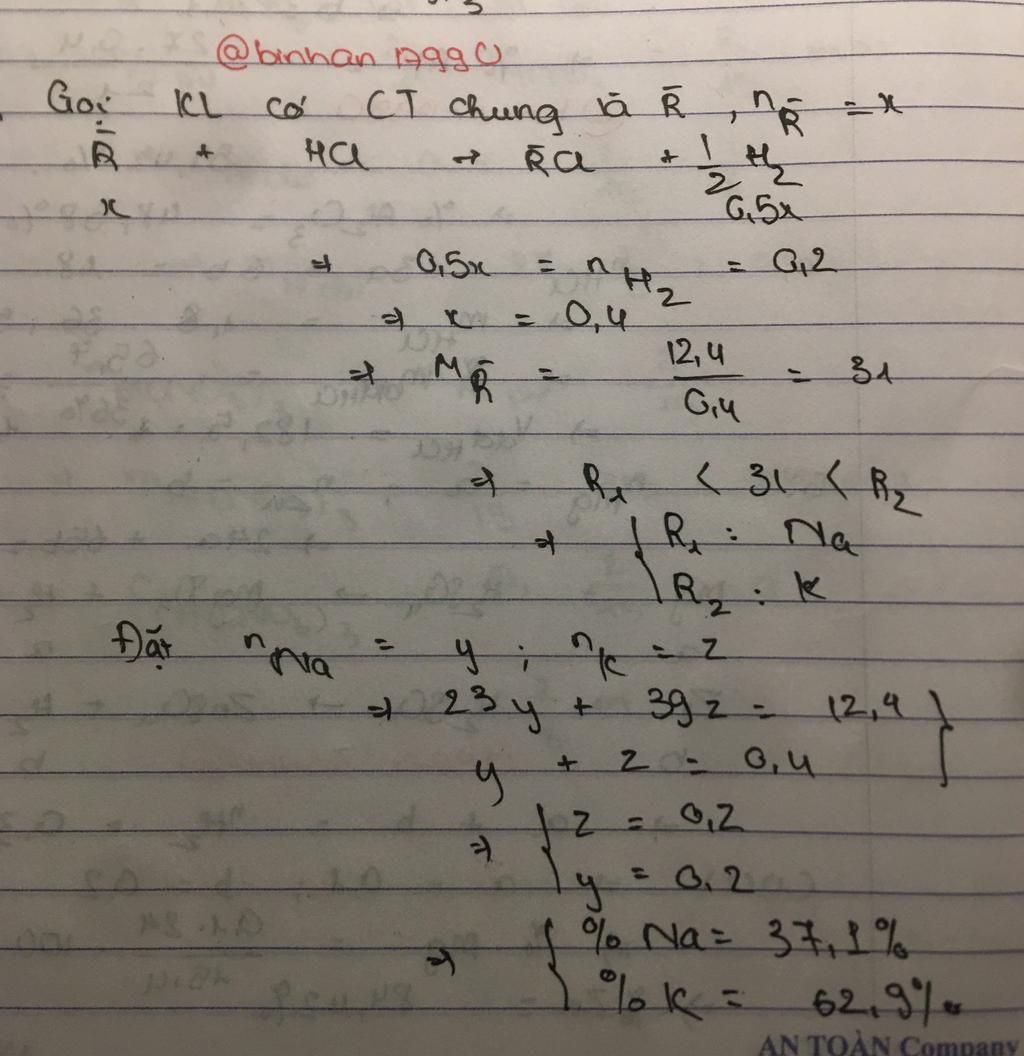 @binhan1799U
Gọi KL có CT chung là R̄, n_R̄ = x
R̄ + HCl → R̄Cl + 1/2 H₂
x 0,5x
⇒ 0,5x = n_H₂ = 0,2
⇒ x = 0,4
⇒ M_R̄ = 12,4/0,4 = 31
⇒ R₁ < 31 < R₂
⇒ { R₁ : Na
R₂ : K
Đặt n_Na = y ; n_K = z
⇒ 23y + 39z = 12,4 }
y + z = 0,4
⇒ { z = 0,2
y = 0,2
⇒ { % Na = 37,1%
% K = 62,9%
AN TOÀN Company